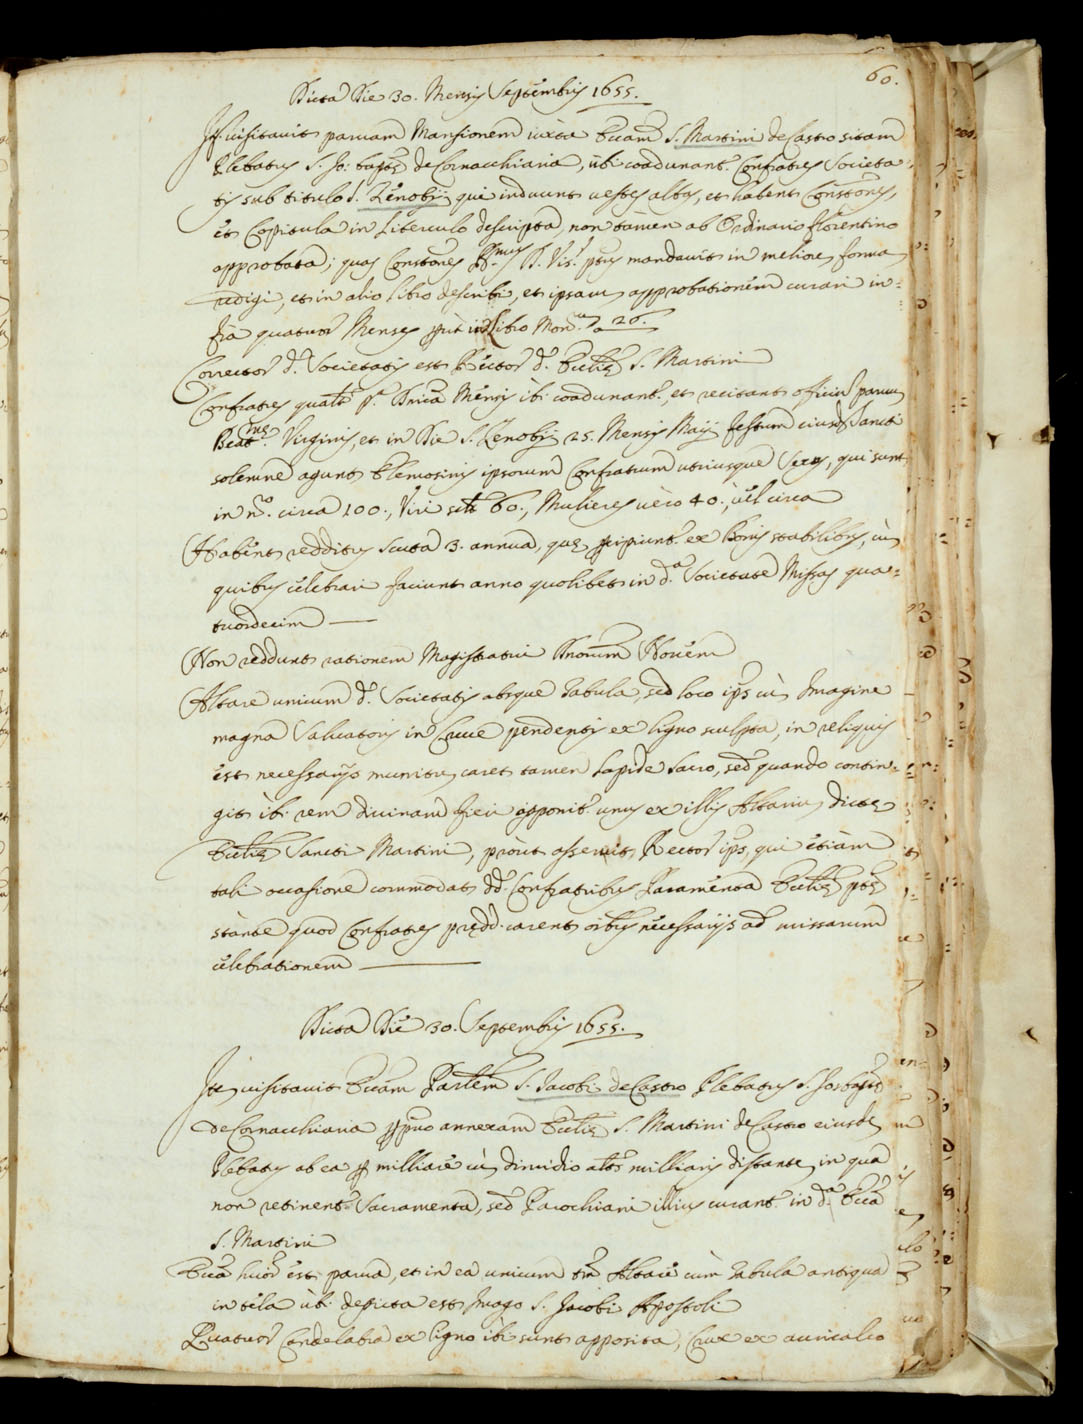 60.
Dicta Die 30. Mensis Septembris 1655.
It. visitavit parvam Mansionem iuxta Eccam S. Martini de Castro sitam
Plebatus S. Jo: baptẽ de Cornacchiaria, ubi coadunantr. Confratres Societa-
tis sub titulo S. Zenobij qui induunt vestes albas, et habent Constones,
et Capitula in Liberculo descripta, non tamen ab Ordinario florentino
approbata; quas Constones Illmus D. Visr. ptus mandavit in meliorem forma
redigi, et in alio libro describi, et ipsarum approbationem curari in-
fra quatuor Menses prut in Libro Monum 26.
Corrector d. Societatis est Rector d. Ecclię S. Martini
Confratres qualt pa. Dnica Mensis ibi coadunantr., et recitant officiu parvu
Beatmę. Virginis, et in Die S. Zenobij 25. Mensis Maij festum eiusd Sancti
solemne agunt Elemosinis ipsorum Confratrum utriusque Sexus, qui sunt
in no. circa 100:, Viri scilt 60:, Mulieres vero 40:, vel circa
Habent redditus Scuta 3. annua, quę pcipiuntr. ex Bonis stabilibus, cu
quibus celebrari faciunt anno quolibet in da. Societate Missas qua-
tuordecim
Non reddunt rationem Magistratui Dnorum Novem
Altare unicum d. Societatis absque Tabula, sed loco ips cu Imagine
magna Salvatoris in Cruce pendentis ex ligno sculpta, in reliquis
est necessarijs munitu, caret tamen Lapide Sacro, sed quando contin-
git ibi rem divinam fieri apponitr unus ex illis Altariu, dictę
Ecclię Sancti Martini, prout asseruit Rector ips, qui etiam
tali occasione commodat dd. Confratribus Paramenta Ecclię ptę
stante quod Confratres predd. carent oibus necessarijs ad missarum
celebrationem
Dicta Die 30. Septembris 1655.
It. visitavit Eccam Parlem S. Jacobi de Castro Plebatus S. Jois baptę
de Cornacchiaria pptuo annexam Ecclię S. Martini de Castro eiusde
Plebatus ab ea p milliare cu dimidio altr milliaris distante, in qua
non retinentr Sacramenta, sed Parochiani illius curantr. in da. Ecca
S. Martini
Ecca huor est parva, et in ea unicum tm Altare cum Tabula antiqua
in tela ubi depicta est Imago S. Jacobi Apostoli
Quatuor Candelabra ex ligno ibi sunt apposita, Crux ex auricalco